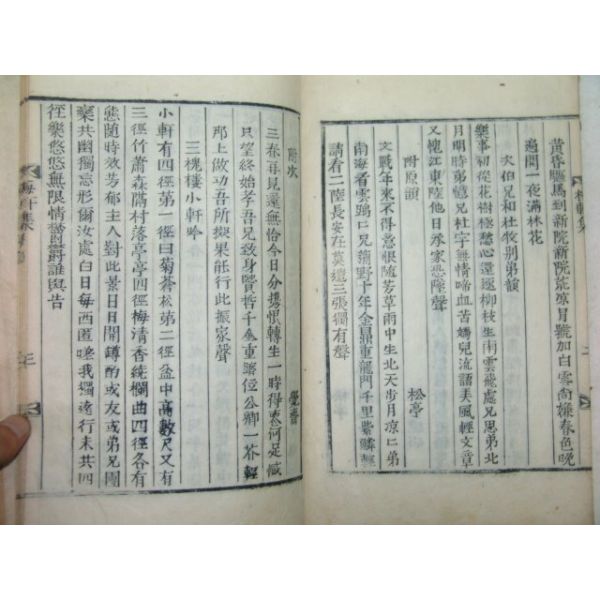 黃昏驅馬到新院新院荒凉月
加白雲尚
春色晚
過聞一夜滿林花
次伯兄和杜牧別弟韻
樂事初從花樹極愁心還逐柳枝生南雲飛處兄思弟北
月明時弟憶兄杜宇無情啼血苦
兒流語美風輕文章
又愧江東陸他日承家恐墜聲
附原韻
松亭
文戰年來不得意恨隨芳草雨中生北天步月凉凉弟
南海看雲鴈
兄蒲野十年金鼎重龍門千里紫鱗輕
請看二陸長安在莫遣三張獨有聲
附次
三春再見還無恰今日分
恨轉生一時得
何足
只望終始孝吾兄致身賢哲千金重
位公卿一芥輕
那上做功吾所樂果能行此振家聲
三槐樓小軒吟
小軒有四徑第一徑曰菊荅松第二徑盆中高數尺又有
三徑竹蕭森滿村落亭亭四徑梅清香繞欄曲四徑各有
態隨時效芳郁主人對此景日日開罇酌或友或弟兄團
欒共幽獨忘形爾汝處白日每西匿嗟我獨遠行未共四
徑樂悠悠無限情鬱鬱誰與告
梅軒集